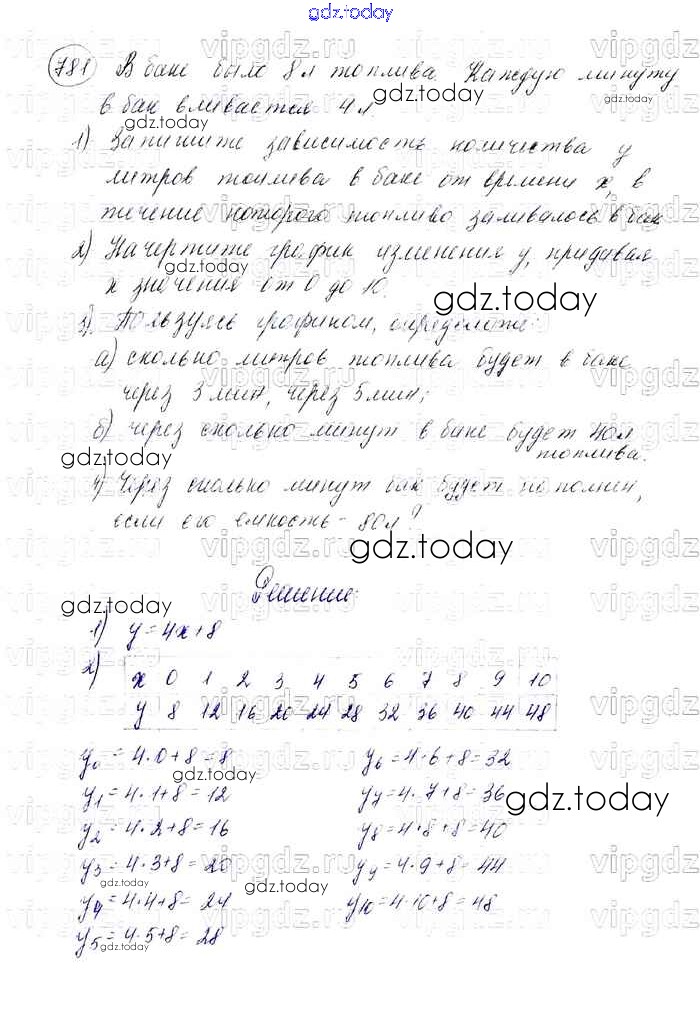 gdz.today
781 В баке было 8 л топлива. Каждую минуту
в бак вливается 4 л.
1) Запишите зависимость количества y
литров топлива в баке от времени x, в
течение которого топливо заливалось в бак
2) Начертите график изменения y, придавая
x значения от 0 до 10.
3) Пользуясь графиком, определите:
а) сколько литров топлива будет в баке
через 3 мин, через 5 мин;
б) через сколько минут в баке будет 40 л
топлива.
4) Через сколько минут бак будет наполнен,
если его емкость - 80 л?
Решение:
1) y = 4x + 8
2) x 0 1 2 3 4 5 6 7 8 9 10
y 8 12 16 20 24 28 32 36 40 44 48
y0 = 4·0+8 = 8 y6 = 4·6+8 = 32
y1 = 4·1+8 = 12 y7 = 4·7+8 = 36
y2 = 4·2+8 = 16 y8 = 4·8+8 = 40
y3 = 4·3+8 = 20 y9 = 4·9+8 = 44
y4 = 4·4+8 = 24 y10 = 4·10+8 = 48
y5 = 4·5+8 = 28